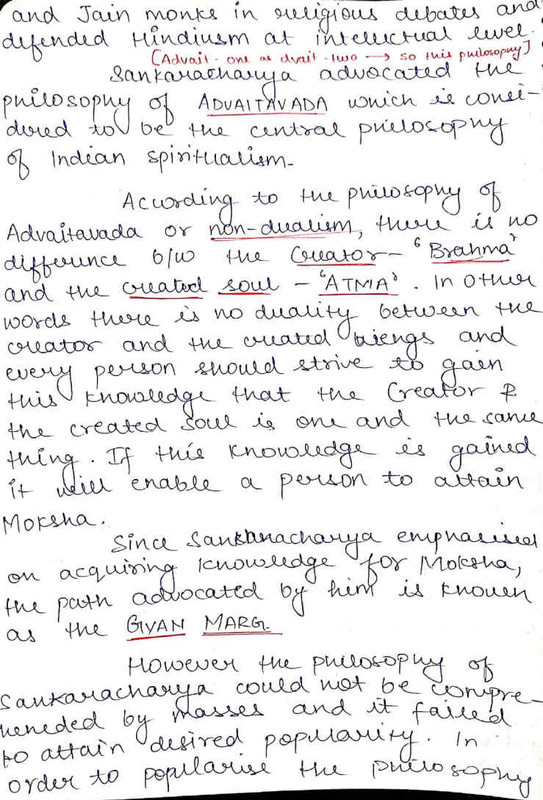 and Jain monks in religious debates and
defended Hinduism at intellectual level.
[Advait - one as dvait - two → so this philosophy]
Sankaracharya advocated the
philosophy of ADVAITAVADA which is consi-
dured to be the central philosophy
of Indian spiritualism.
According to the philosophy of
Advaitavada or non-dualism, there is no
difference b/w the Creator - 'Brahma'
and the created soul - 'ATMA'. In other
words there is no duality between the
creator and the created biengs and
every person should strive to gain
this knowledge that the Creator &
the created soul is one and the same
thing. If this knowledge is gained
it will enable a person to attain
Moksha.
Since Sankaracharya emphasised
on acquiring knowledge for Moksha,
the path advocated by him is known
as the GYAN MARG.
However the philosophy of
Sankaracharya could not be compre-
heneded by masses and it failed
to attain desired popularity. In
order to popularise the philosophy